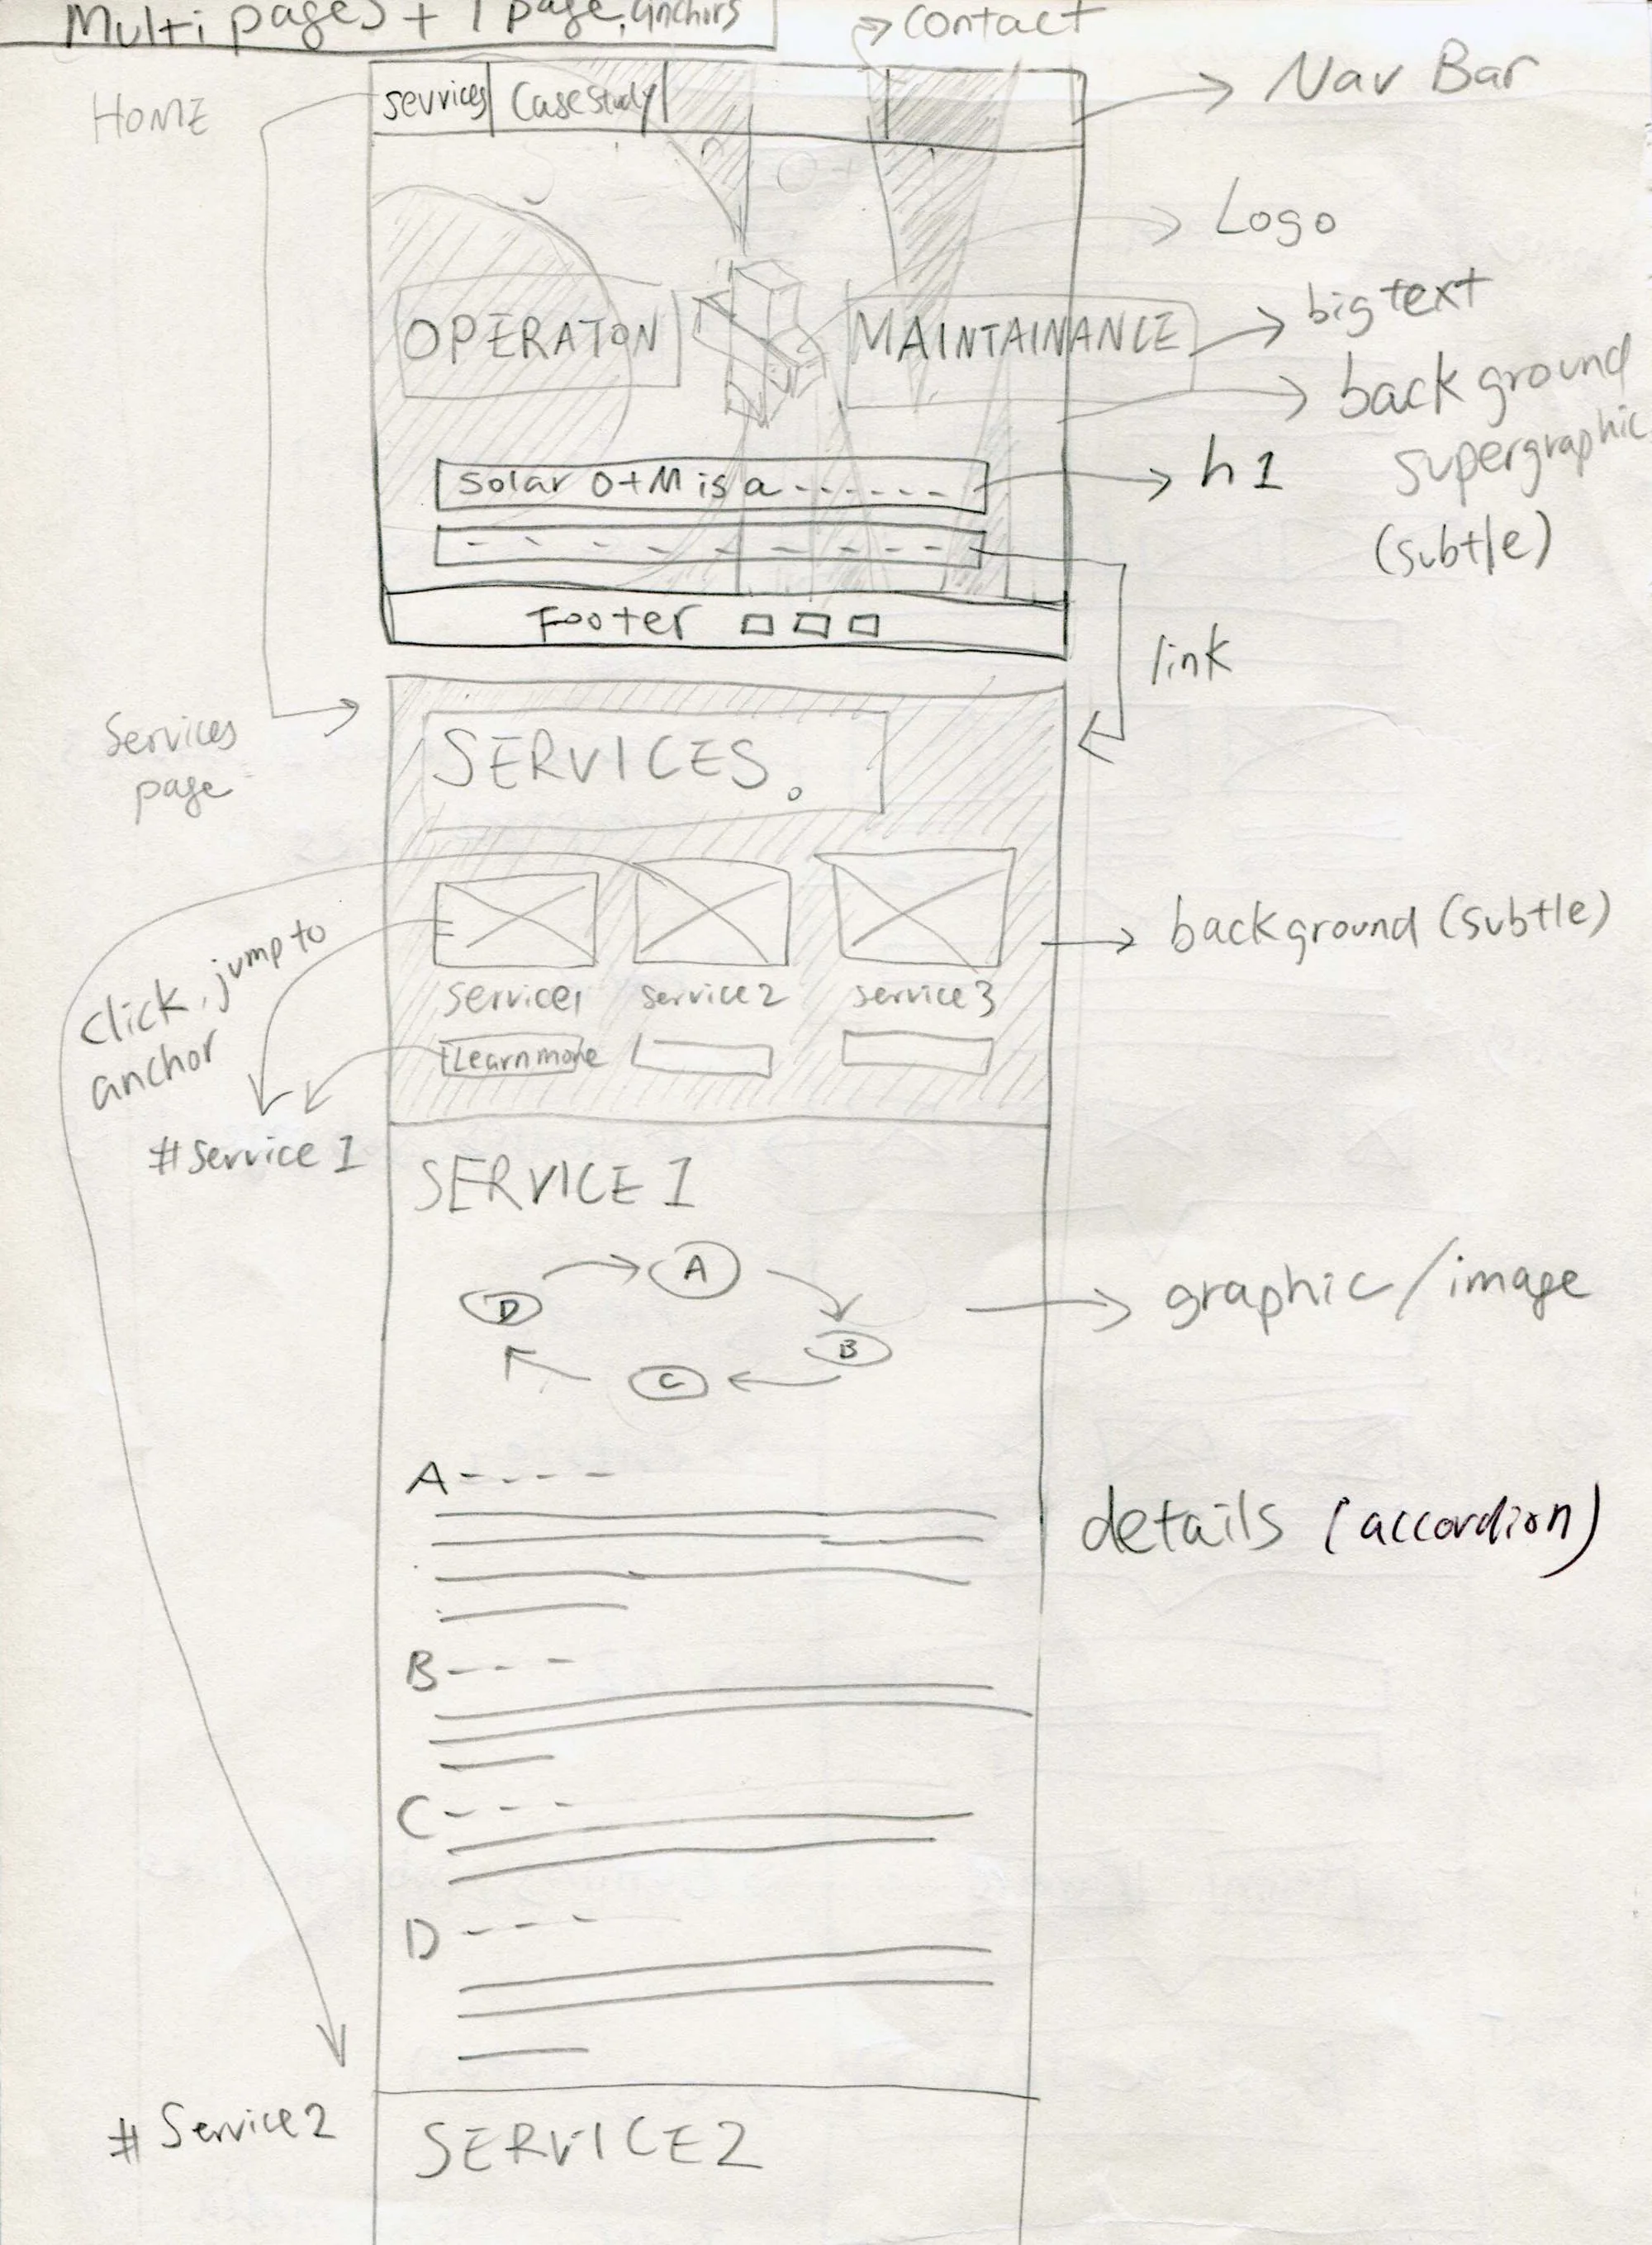 Multi pages + 1 page, anchors
contact
HOME
services
Case Study
Nav Bar
Logo
OPERATON
MAINTAINANCE
big text
background
supergraphic
(subtle)
Solar O+M is a ------
h1
Footer
link
Services
page
SERVICES.
click, jump to
anchor
background (subtle)
Service1
Service2
Service3
Learn more
#Service 1
SERVICE 1
A
D
B
C
graphic/image
A----
details (accordion)
B---
C---
D---
#Service2
SERVICE2